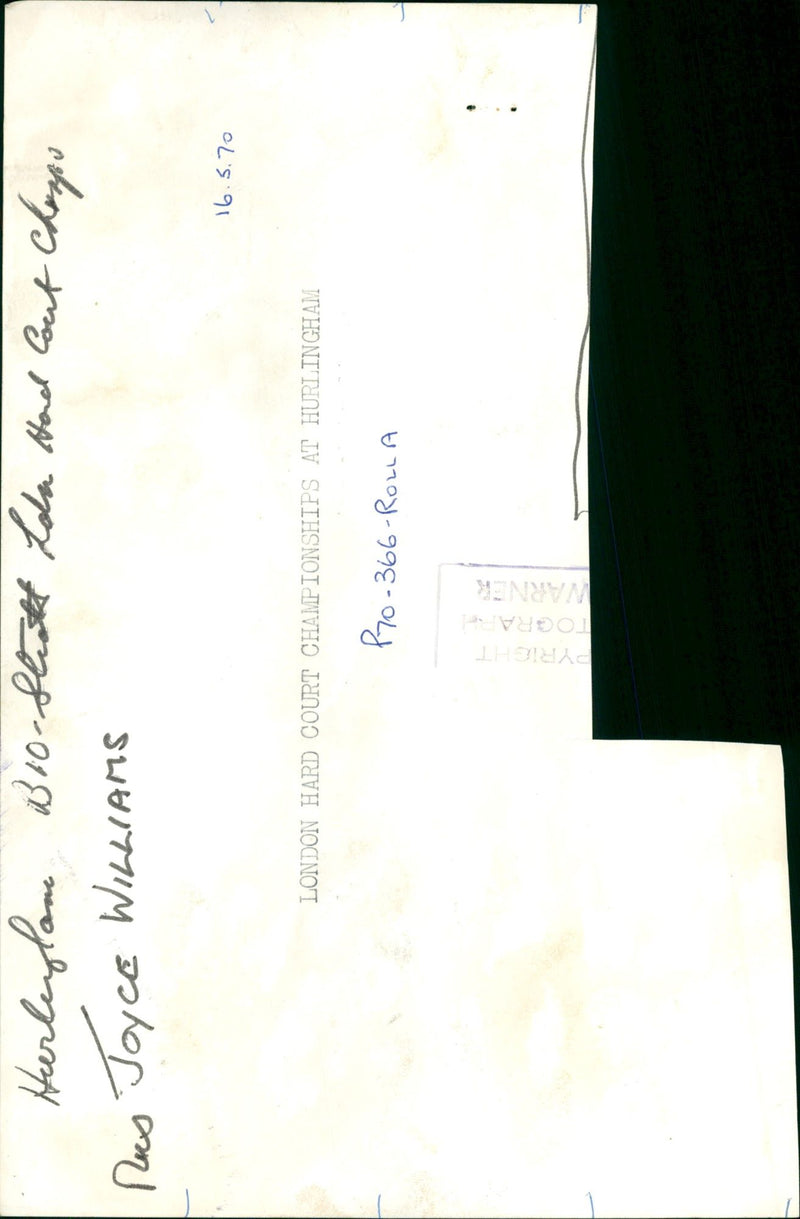 Hurlingham B10-Stratt Ldn Hard Court Chmps
Mrs JOYCE WILLIAMS
16.5.70
LONDON HARD COURT CHAMPIONSHIPS AT HURLINGHAM
P70-366-ROLL A
PYRIGHT
TOGRAPH
WARNER